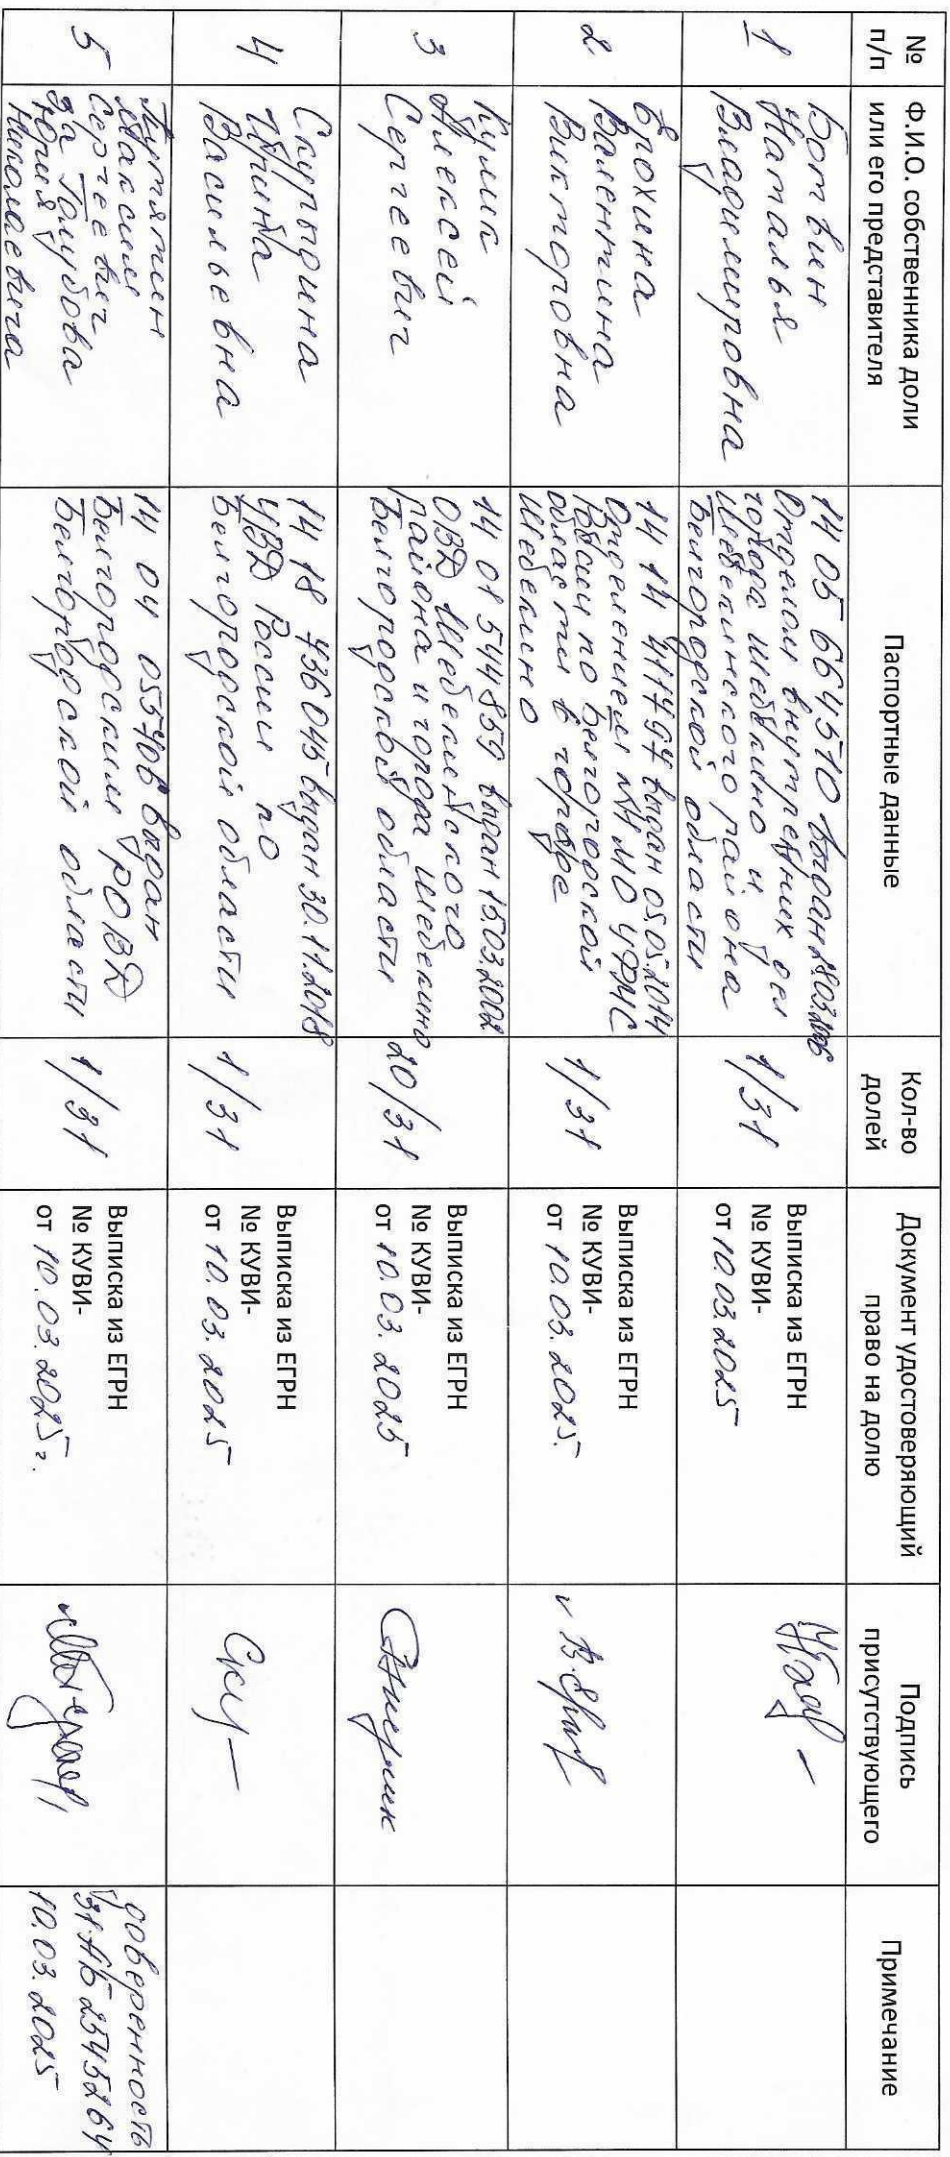 № п/п
Ф.И.О. собственника доли
или его представителя
Паспортные данные
Кол-во
долей
Документ удостоверяющий
право на долю
Подпись
присутствующего
Примечание
1
Ботвин
Наталья
Владимировна
14 05 664570 выдан 28.03.2006
Отделом внутренних дел
города Шебекино и
Шебекинского района
Белгородской области
1/31
Выписка из ЕГРН
№ КУВИ-
от 10.03.2025
2
Ерохина
Валентина
Викторовна
14 14 выдан 05.05.2014
Отделением №1 МО УФМС
России по Белгородской
области в городе
Шебекино
1/31
Выписка из ЕГРН
№ КУВИ-
от 10.03.2025.
3
Кулик
Алексей
Сергеевич
14 01 544859 выдан 15.03.2002
ОВД Шебекинского
района и города Шебекино
Белгородской области
20/31
Выписка из ЕГРН
№ КУВИ-
от 10.03.2025
4
Скурыдина
Ирина
Васильевна
14 18 736045 выдан 30.11.2018
УВД России по
Белгородской области
1/31
Выписка из ЕГРН
№ КУВИ-
от 10.03.2025
5
Максим
Сергеевич
за Голубова
Юрия
Николаевича
14 04 055706 выдан
Белгородским РОВД
Белгородской области
1/31
Выписка из ЕГРН
№ КУВИ-
от 10.03.2025г.
доверенность
31АБ2545264
10.03.2025